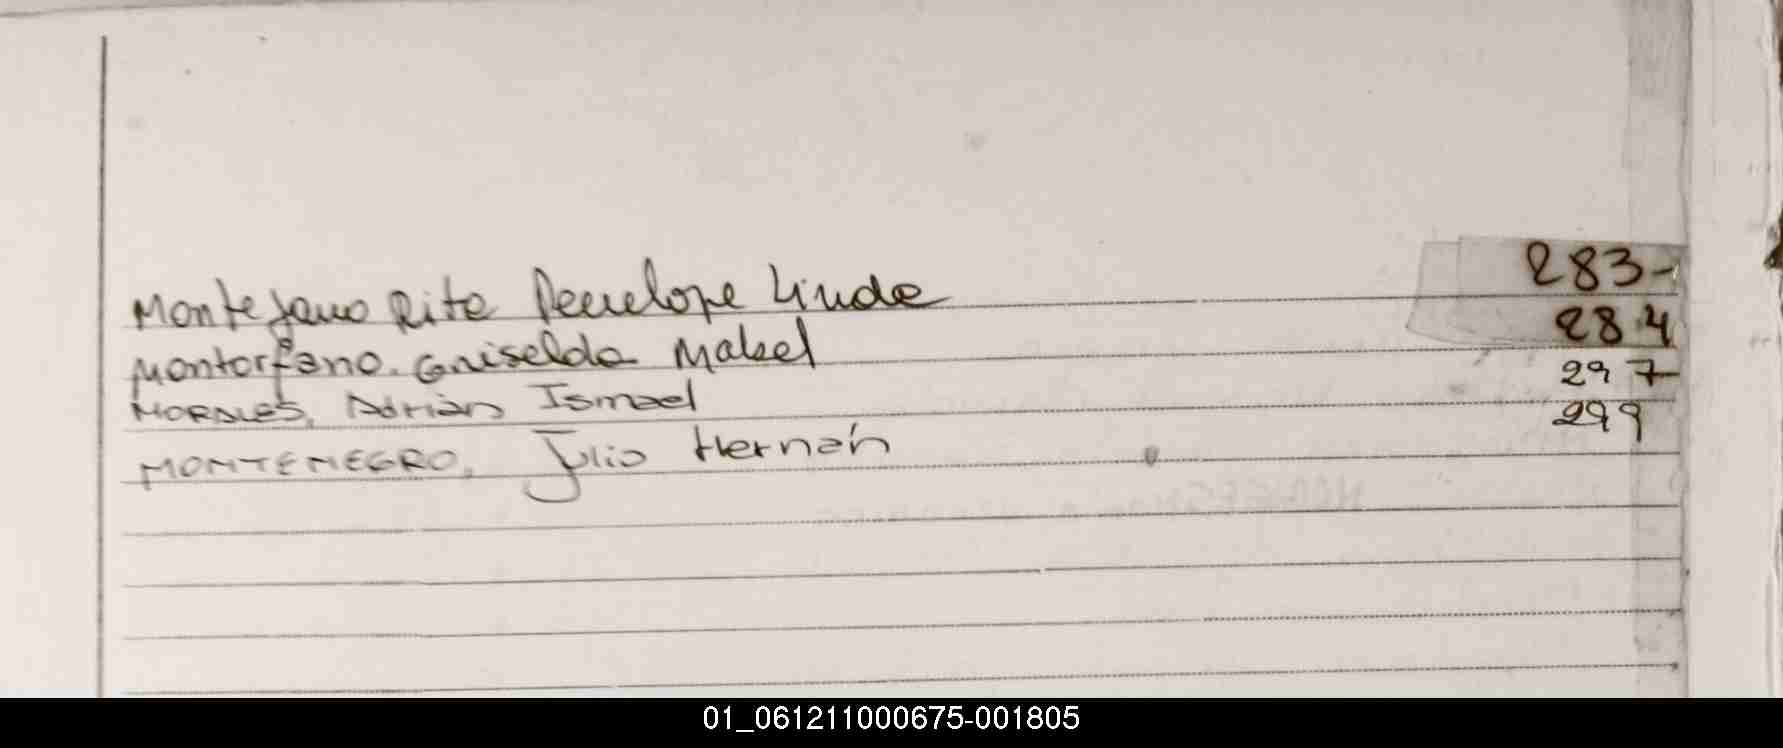 Montejano Rita Penelope Linda 283-
Montorfano. Griselda Mabel 284
MORALES, Adrián Ismael 297
MONTENEGRO, Julio Hernán 299
01_061211000675-001805